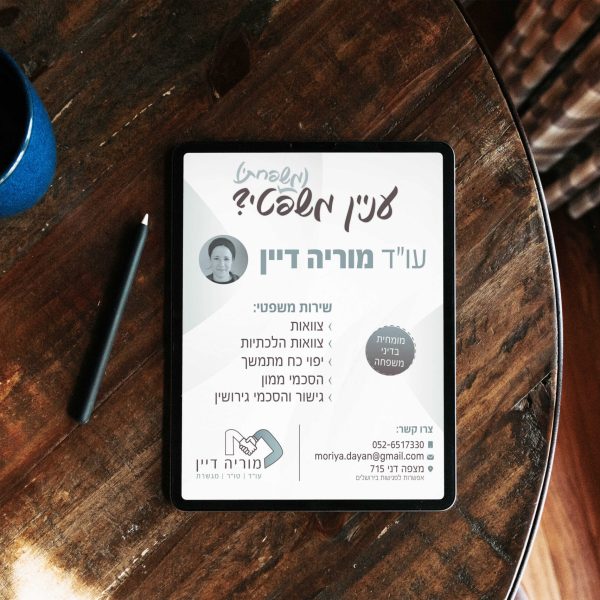 (משפחתי)
עניין משפטי?
עו"ד מוריה דיין
שירות משפטי:
› צוואות
› צוואות הלכתיות
› יפוי כח מתמשך
› הסכמי ממון
› גישור והסכמי גירושין
מומחית
בדיני
משפחה
צרו קשר:
052-6517330
moriya.dayan@gmail.com
מצפה דני 715
אפשרות לפגישות בירושלים
מוריה דיין
עו"ד | טו"ר | מגשרת